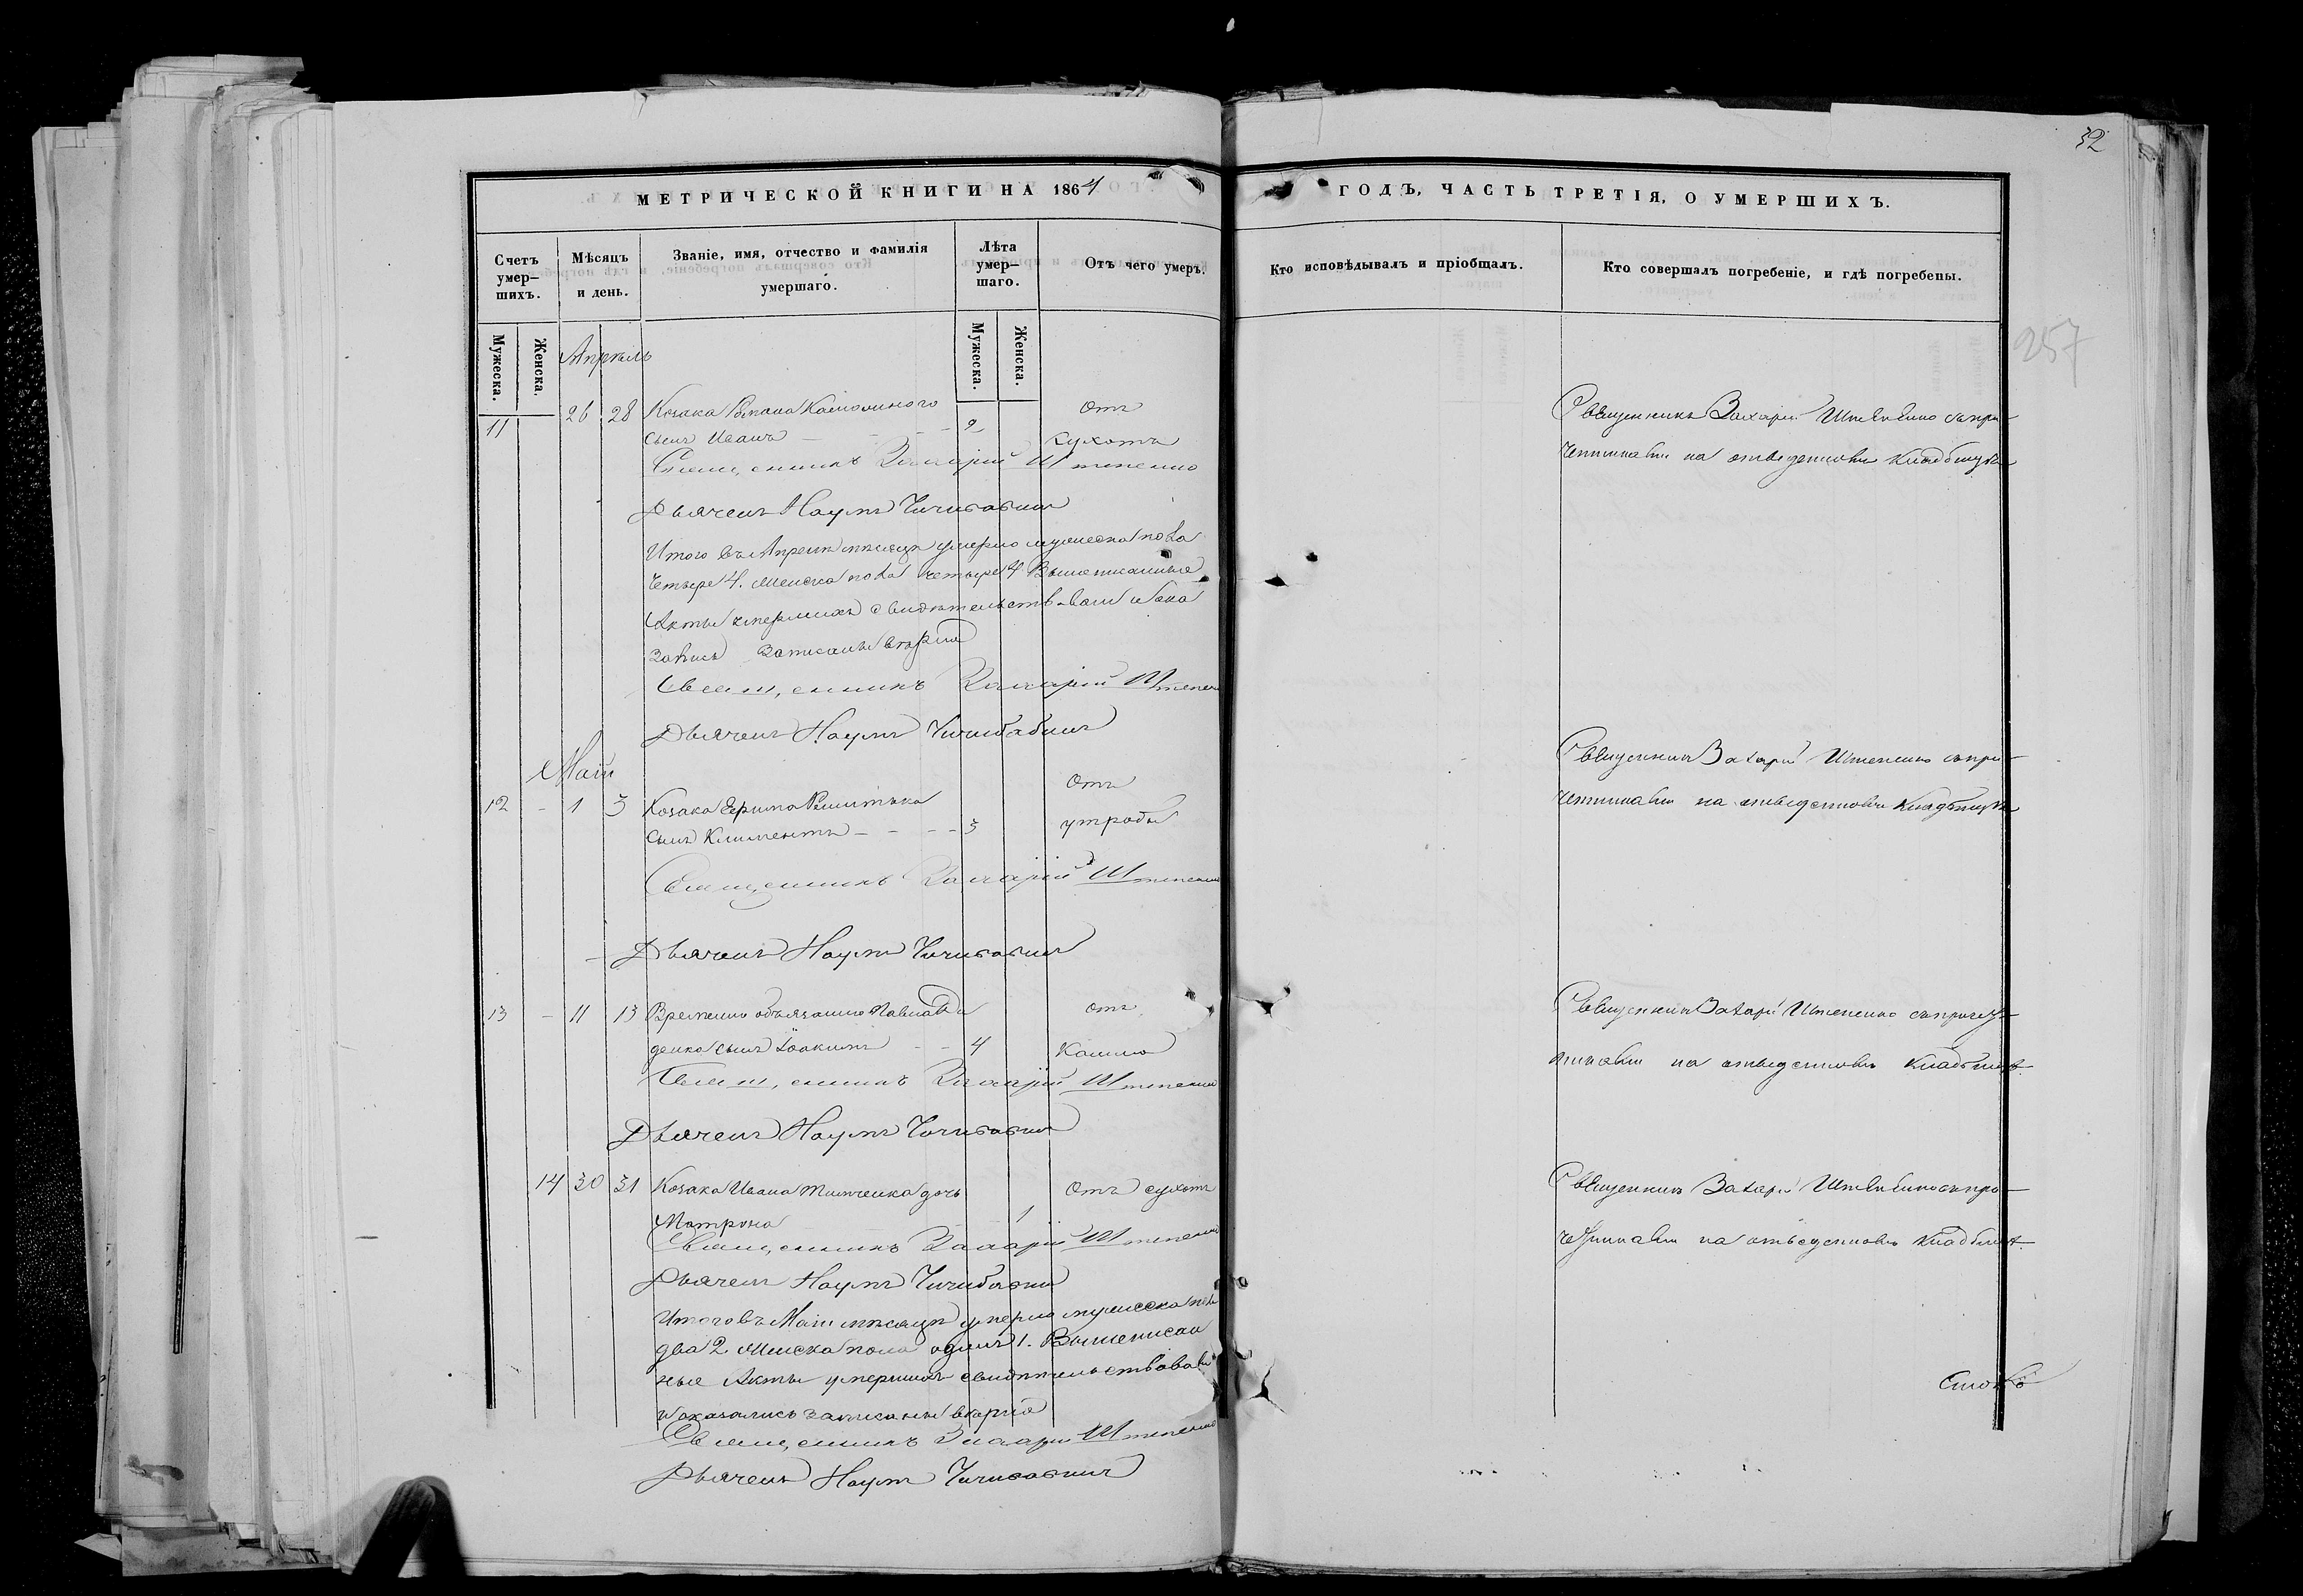 32
257
МЕТРИЧЕСКОЙ КНИГИ НА 1864
ГОДЪ, ЧАСТЬ ТРЕТІЯ, О УМЕРШИХЪ.
Счетъ умер-
шихъ.
Мѣсяцъ
и день.
Званіе, имя, отчество и фамилія
умершаго.
Лѣта
умер-
шаго.
Отъ чего умеръ.
Кто исповѣдывалъ и пріобщалъ.
Кто совершалъ погребеніе, и гдѣ погребены.
Мужеска.
Женска.
Мужеска.
Женска.
Апрѣль
11 26 28 Козака Романа
сынъ Иванъ 2
Отъ
сухотъ
Священникъ Захарій
на отведенномъ кладбищѣ
Священникъ Захарій Штепенко
Дьячекъ Наумъ Чичибабинъ
Итого въ Апрелѣ мѣсяцѣ умерло мужеска пола
четыре 4. Женска пола четыре 4 Вышеписанные
Акты умершихъ свидѣтельствовали и ока
записаны вѣрно
Священникъ Захарій
Дьячекъ Наумъ Чичибабинъ
Май
12 - 1 3 Козака Ефрима
сынъ Климентъ 3
Отъ
утробы
Священникъ Захарій Штепенко
на отведенномъ кладбищѣ
Священникъ Захарій Штепенко
Дьячекъ Наумъ Чичибабинъ
13 - 11 13 Временно обязанно Павла
сынъ Іоакимъ 4
отъ
кашлю
Священникъ Захарій Штепенко
на отведенномъ
Священникъ Захарій Штепенко
Дьячекъ Наумъ Чичибабинъ
14 30 31 Козака Ивана Тимченка дочь
Матрона 1
Отъ сухотъ
Священникъ Захарій
на отведенномъ
Священникъ Захарій Штепенко
Дьячекъ Наумъ Чичибабинъ
Итого въ Маи мѣсяцѣ умерло мужеска
два 2. Женска пола одинъ 1. Вышеписан
ные Акты умершихъ свидѣтельствовали
и оказались записаны вѣрно
Священникъ Захарій Штепенко
Дьячекъ Наумъ Чичибабинъ